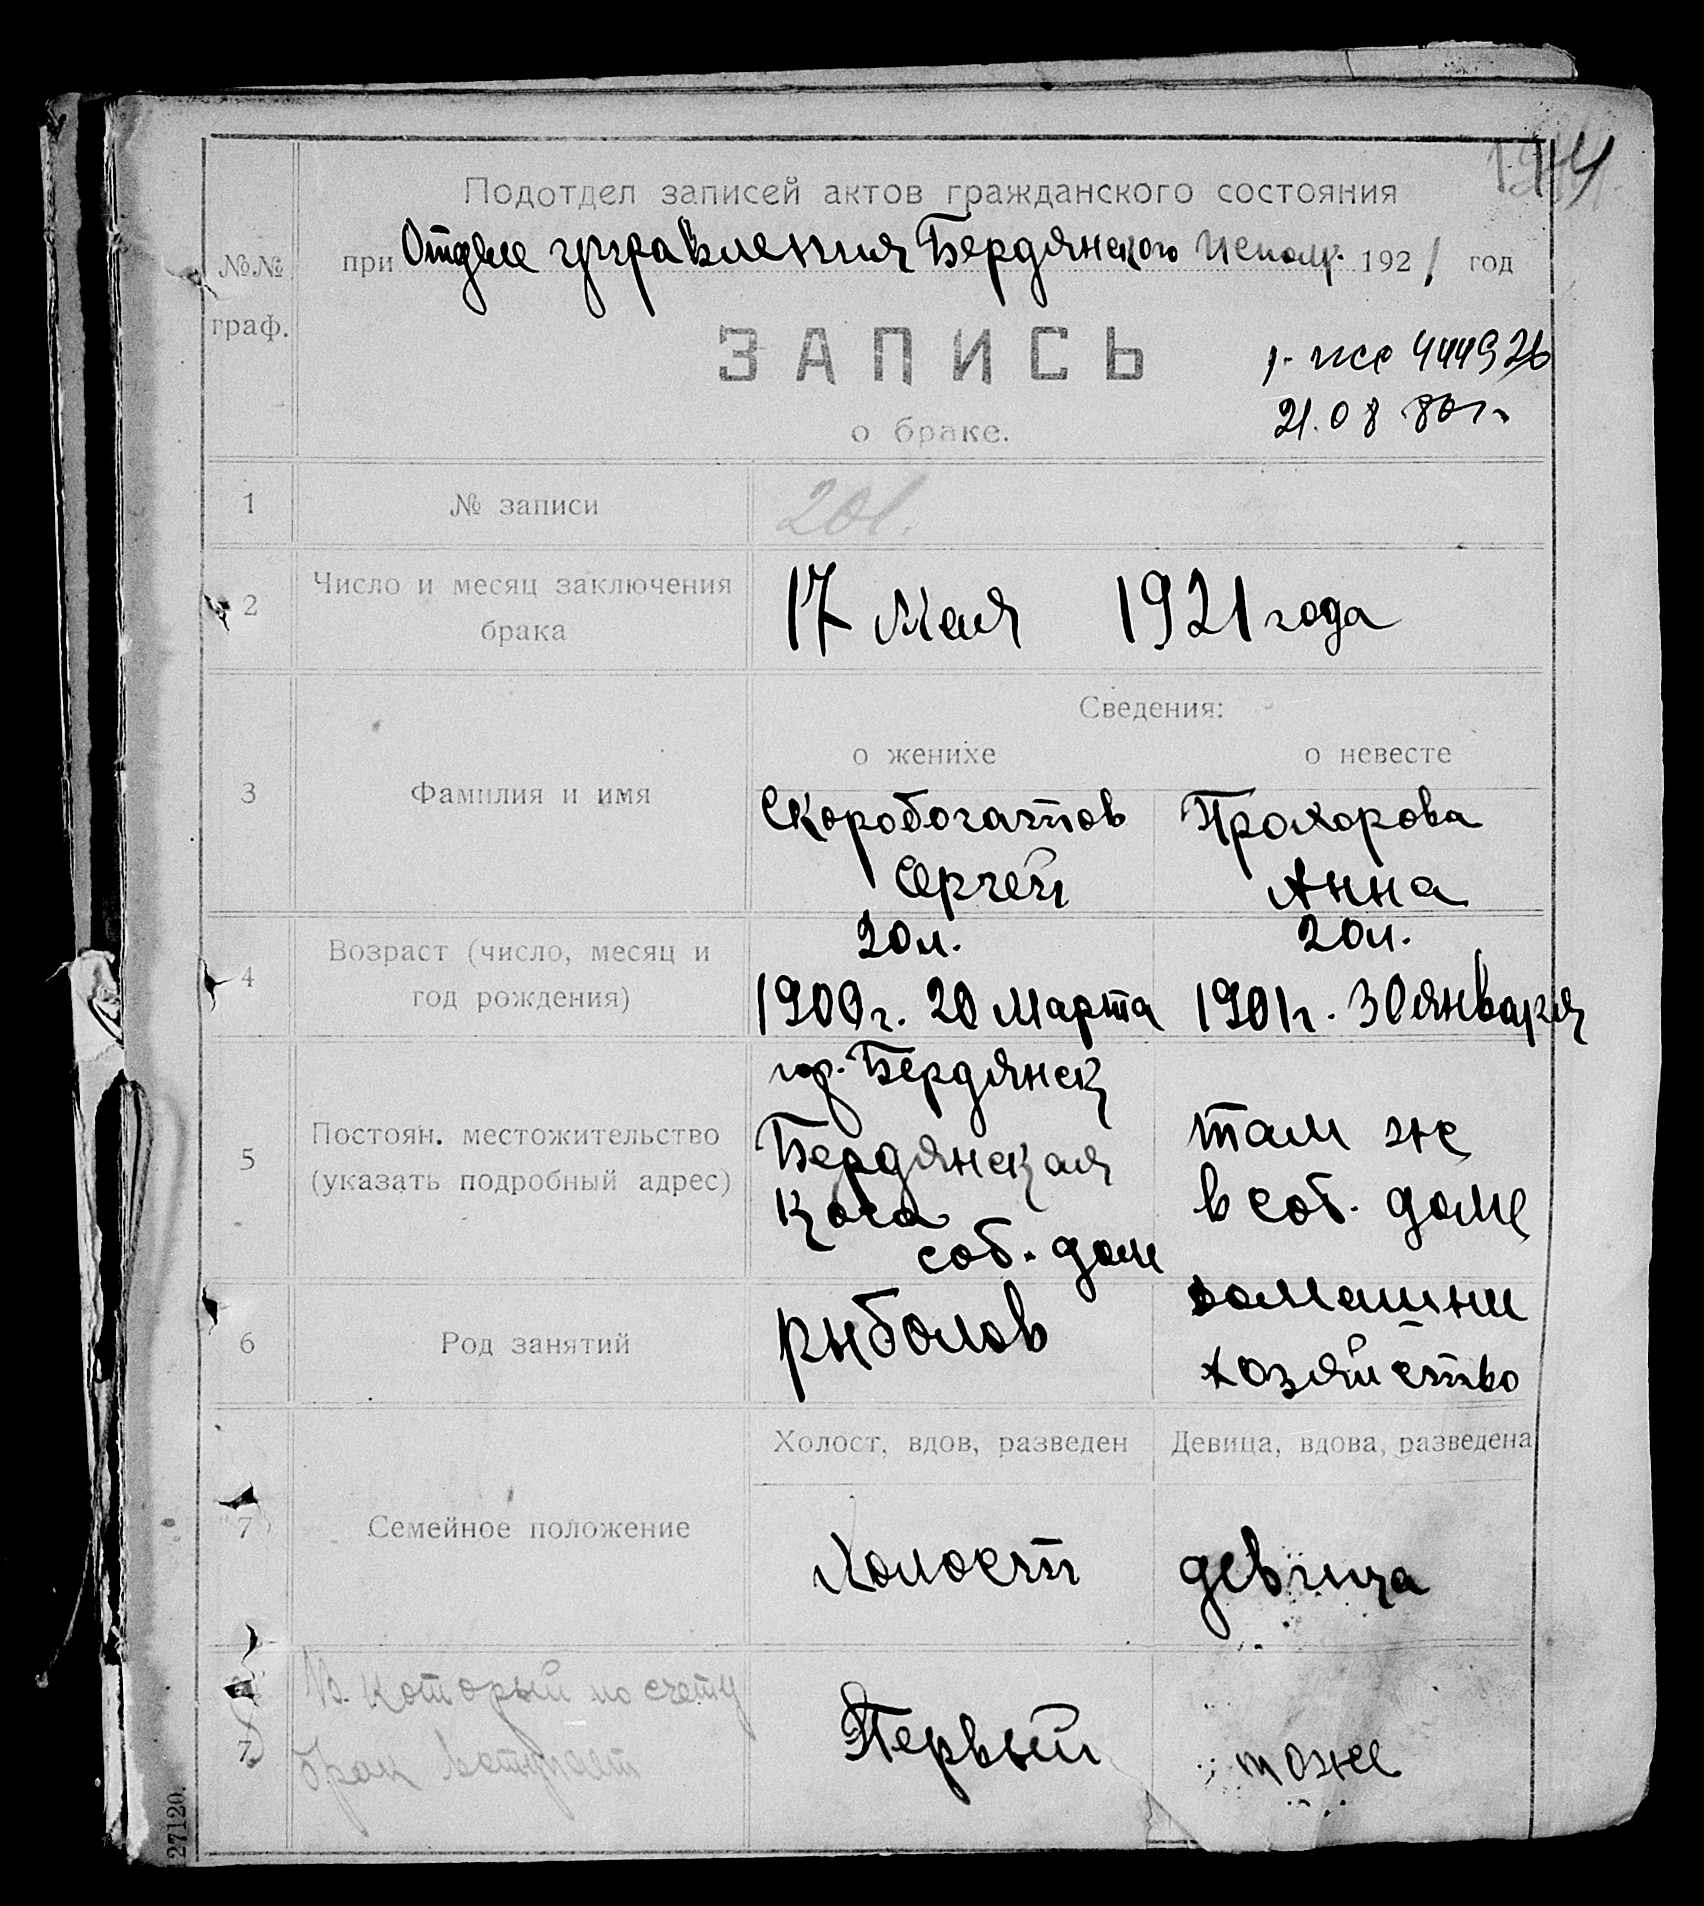 Подотдел записей актов гражданского состояния
№№ граф.
при Отделе управления Бердянского Исполк. 1921 год
ЗАПИСЬ
21.08.80г.
о браке.
1 № записи 201.
2 Число и месяц заключения брака 17 Мая 1921 года
Сведения:
о женихе о невесте
3 Фамилия и имя
Скоробогатов Прохорова
Сергей Анна
20л. 20л.
4 Возраст (число, месяц и
год рождения)
1900г. 20 Марта 1901г. 30 января
гор. Бердянск
5 Постоян. местожительство
(указать подробный адрес)
Бердянская там же
Коса в соб. доме
соб. дом
6 Род занятий рыболов домашни
хозяйство
Холост, вдов, разведен Девица, вдова, разведена
7 Семейное положение Холост девица
В который по счету
7 брак вступает Первый тоже
27120.